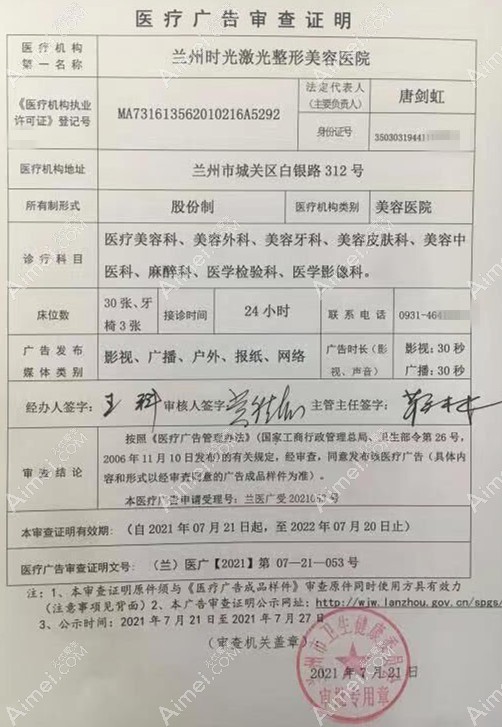 医疗广告审查证明
医疗机构
第一名称
兰州时光激光整形美容医院
《医疗机构执业
许可证》登记号
MA731613562010216A5292
法定代表人
(主要负责人)
唐剑虹
身份证号
35030319441
医疗机构地址
兰州市城关区白银路 312 号
所有制形式
股份制
医疗机构类别
美容医院
诊疗科目
医疗美容科、美容外科、美容牙科、美容皮肤科、美容中
医科、麻醉科、医学检验科、医学影像科。
床位数
30 张、牙
椅 3 张
接诊时间
24 小时
联系电话
0931-464
广告发布
媒体类别
影视、广播、户外、报纸、网络
广告时长(影
视、声音)
影视:30 秒
广播:30 秒
经办人签字:王科
审核人签字
主管主任签字:
审查结论
按照《医疗广告管理办法》(国家工商行政管理总局、卫生部令第 26 号,
2006 年 11 月 10 日发布)的有关规定,经审查,同意发布该医疗广告(具体内
容和形式以经审查同意的广告成品样件为准)。
本医疗广告申请受理号:兰医广受 2021053 号
本审查证明有效期:(自 2021 年 07 月 21 日起,至 2022 年 07 月 20 日止)
医疗广告审查证明文号:(兰)医广【2021】第 07-21-053 号
注:1、本审查证明原件须与《医疗广告成品样件》审查原件同时使用方具有效力
(注意事项见背面)2、本广告审查证明公示网址:http://wjw.lanzhou.gov.cn/spgs/
3、公示时间:2021 年 7 月 21 日至 2021 年 7 月 27 日
(审查机关盖章):
2021 年 7 月 21 日
州市卫生健康委员会
审批专用章
Aimei.com